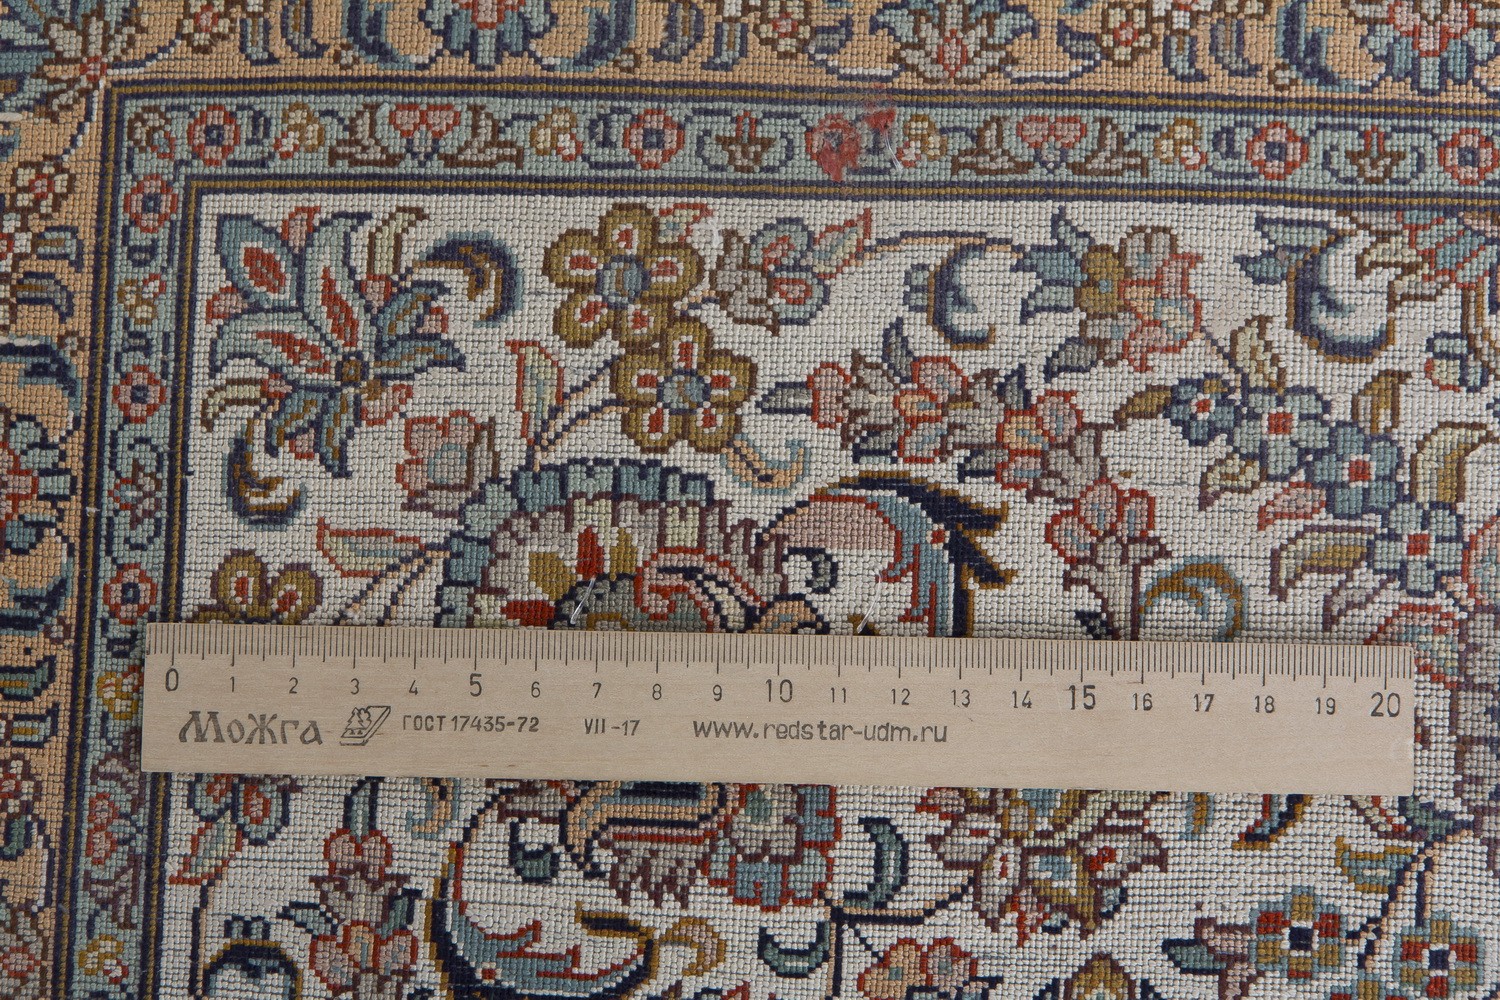 0 1 2 3 4 5 6 7 8 9 10 11 12 13 14 15 16 17 18 19 20
Можга ГОСТ 17435-72 VII-17 www.redstar-udm.ru